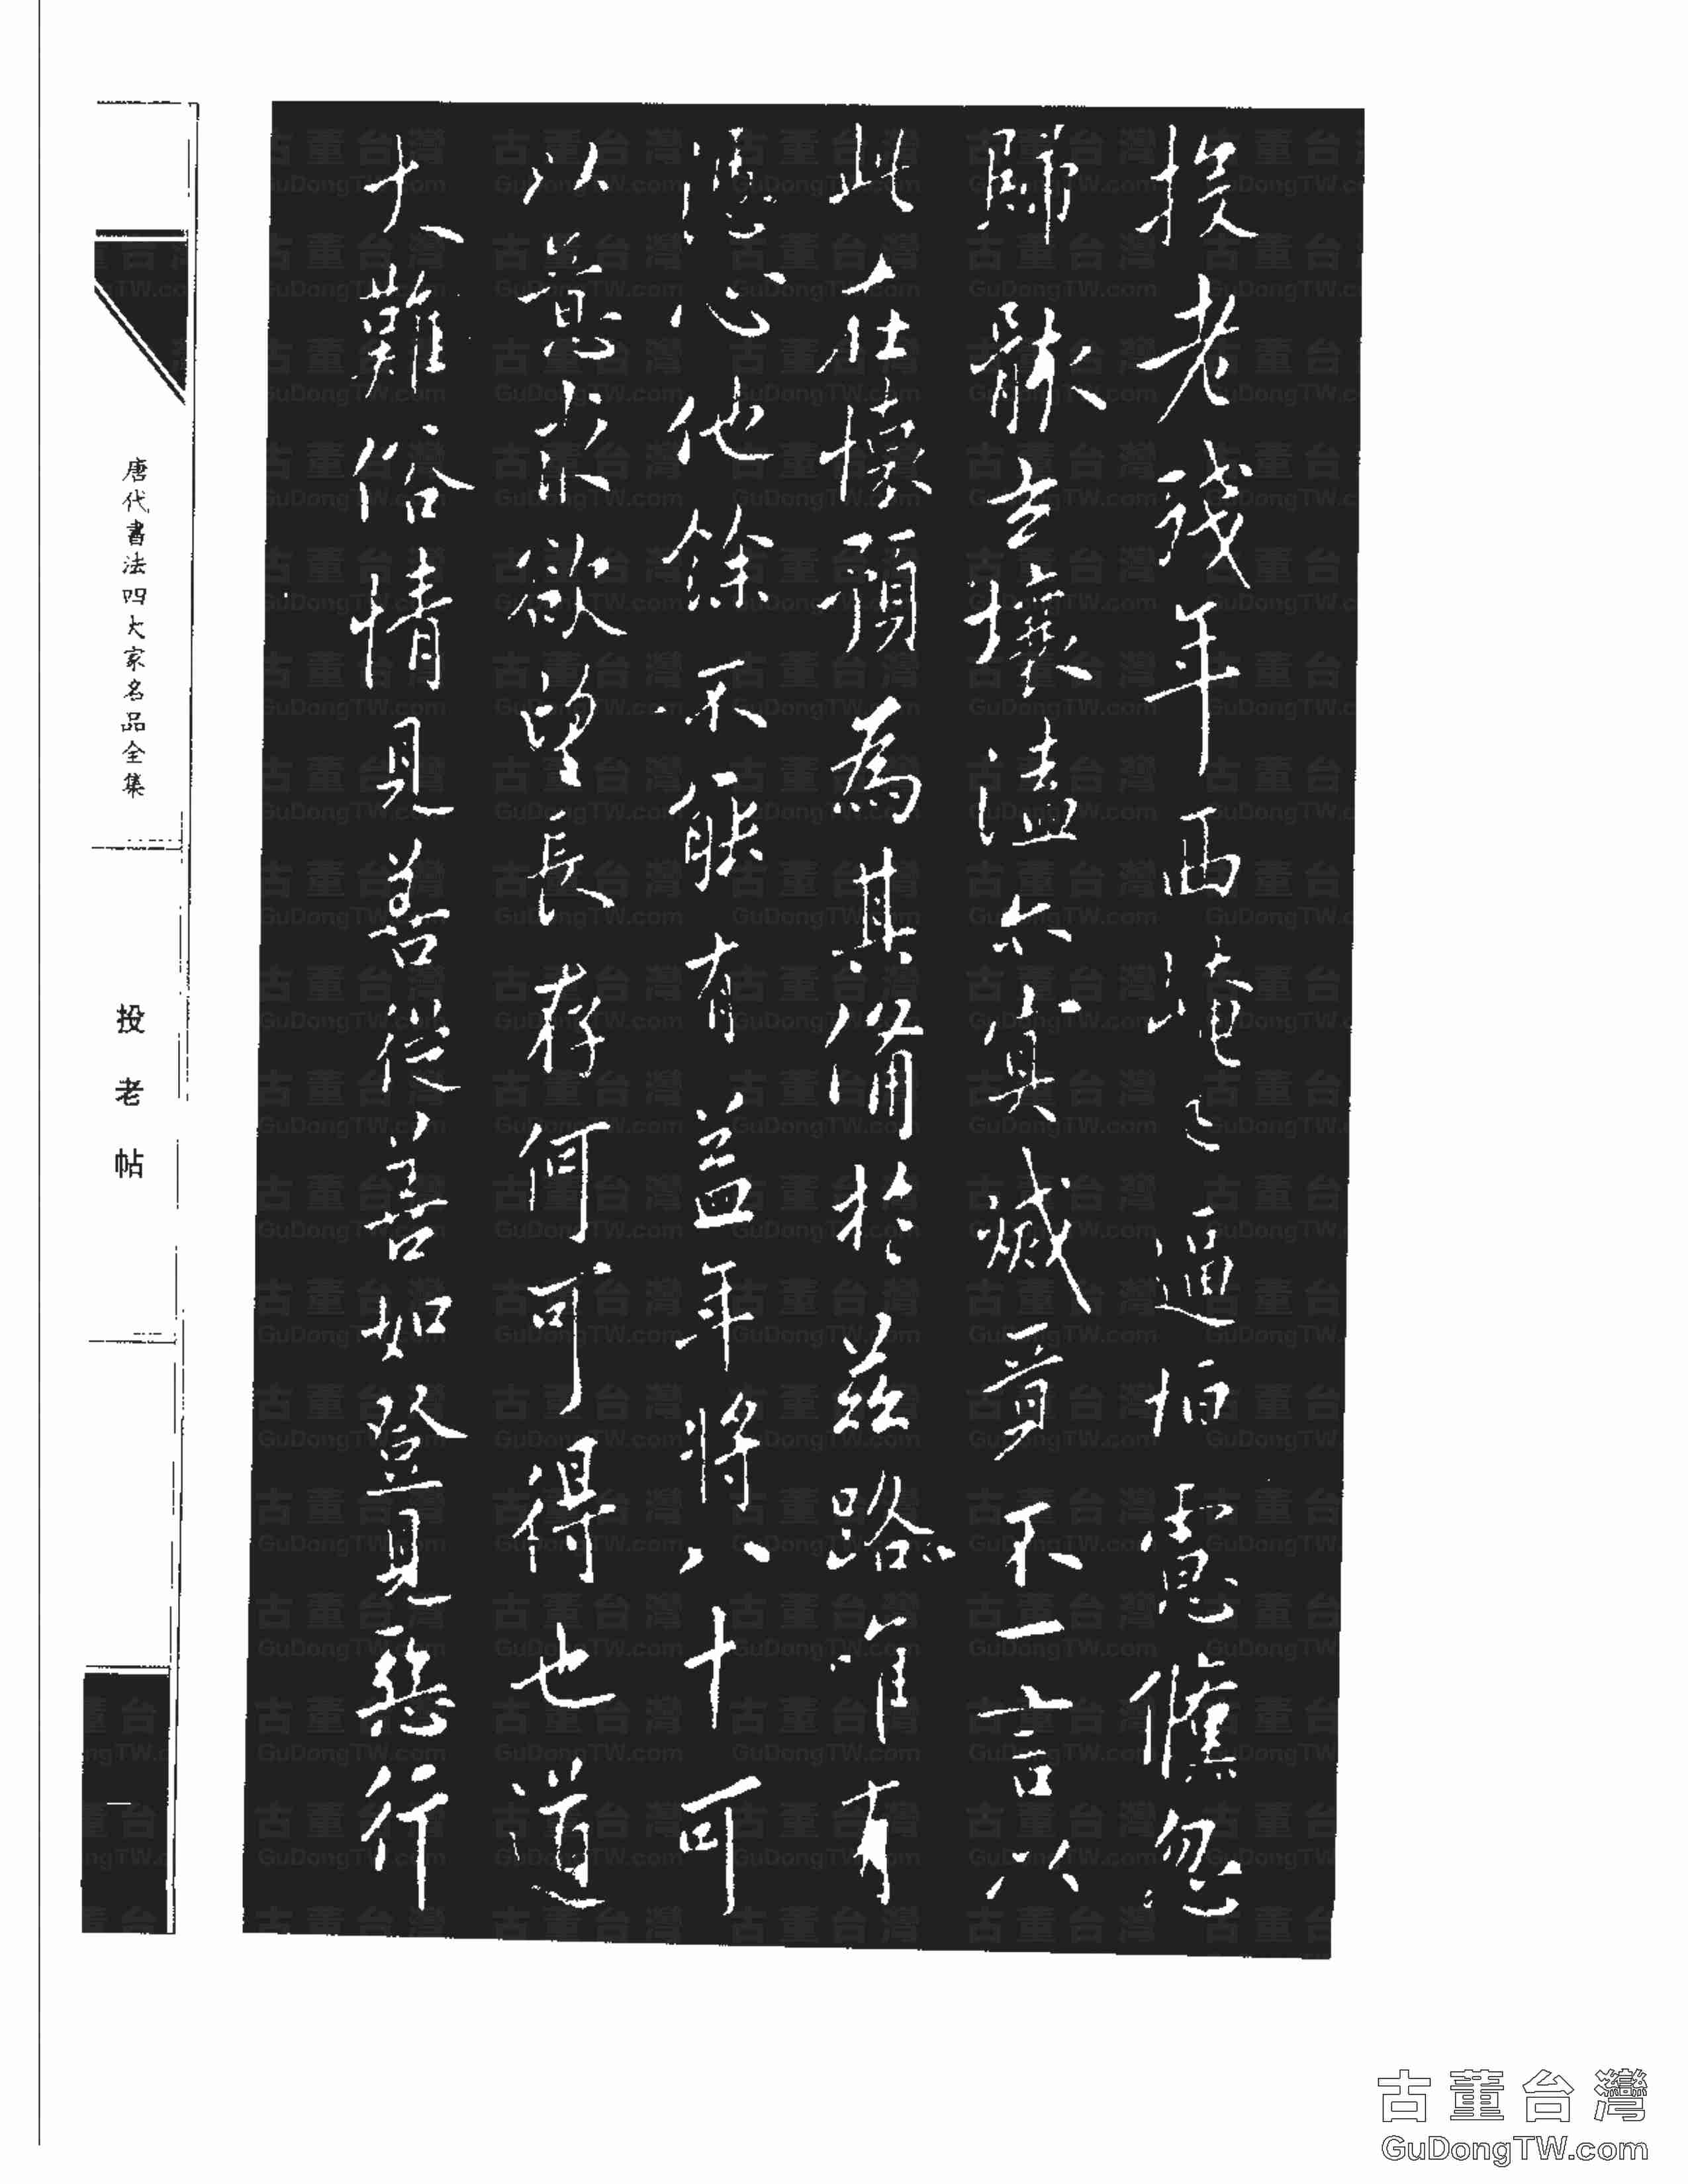 投老殘年西崦已逼恒慮儵忽
歸骸玄壤溘尓冥滅不一言以
此在懷預為其備於茲路唯有
憑心他餘不能有益年將八十可
以意求欲望長存何可可得也道
大難俗情見善從善如登見惡行
唐代書法四大家名品全集
投老帖
一
古董台灣
GuDongTW.com